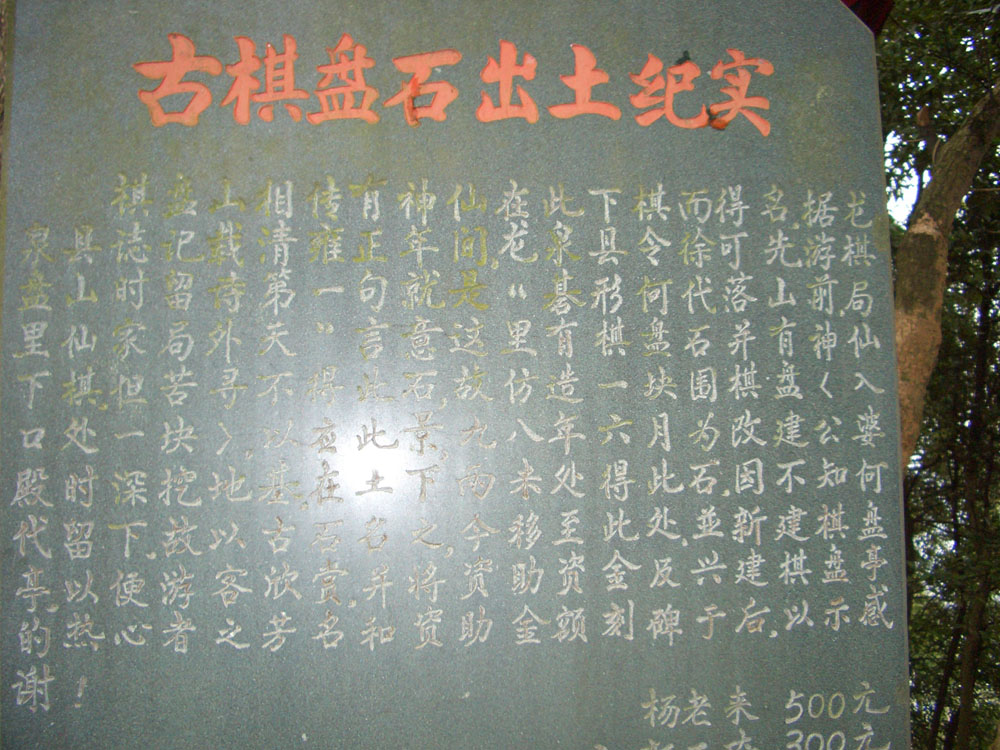 古棋盘石出土纪实
棋盘山相传有神仙在此下棋而得名,据龙
泉县志记载清雍正年间,龙泉县令徐可先游棋
盘山时留诗第一句就是“碁形何代落山前局
里仙家局外天”言意这里有棋盘石并有神仙
下棋,但苦寻不得此石,故仿造一块围棋盘〈入
口处一块〉以应此景,九八年六月为改建公婆
殿时深挖地基,在土下两米处得此石,因不知何
代留下,故以古石名之,今移至此处,並新建棋盘
亭,以便游客欣赏,并将资助资金及兴建棋盘亭
的热心者之芳名和资助金额刻碑于后,以示感
谢!
杨老来 500元
300元